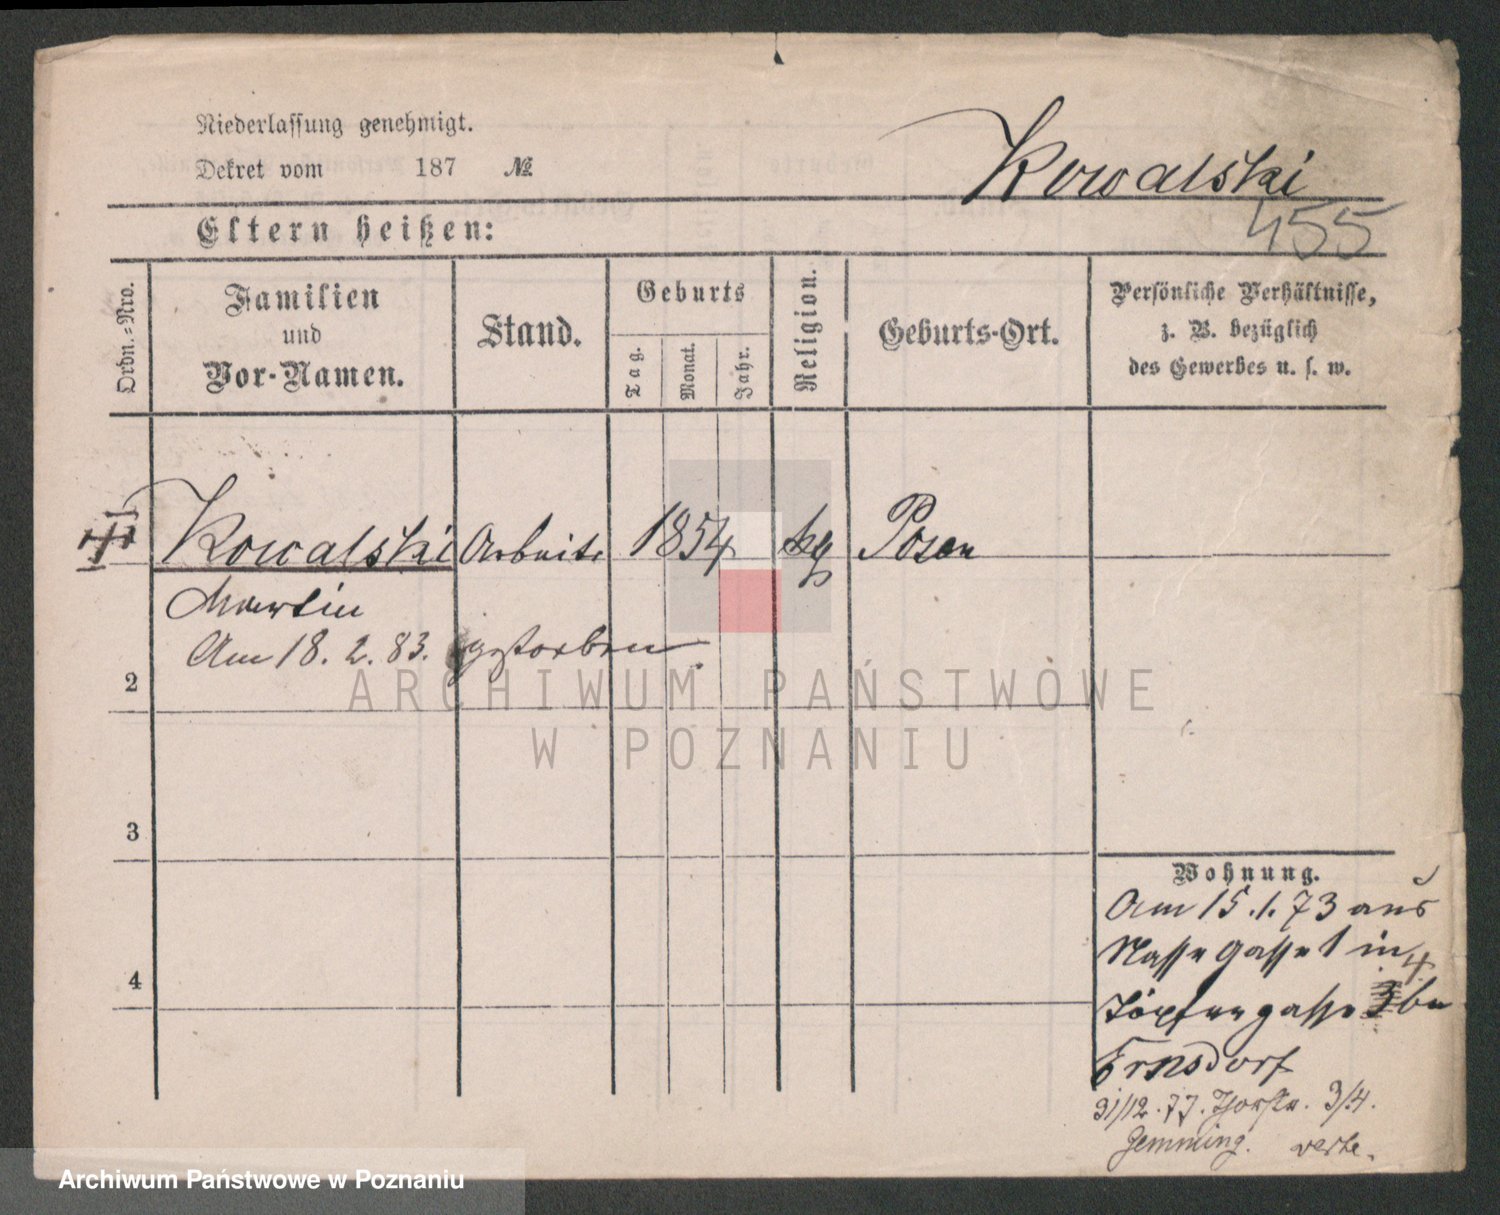 Niederlassung genehmigt.
Dekret vom 187 №
Kowalski
455
Eltern heißen:
Ordn.=Nro.
Familien
und
Vor-Namen.
Stand.
Geburts
Tag.
Monat.
Jahr.
Religion.
Geburts-Ort.
Persönliche Verhältnisse,
z. B. bezüglich
des Gewerbes u. s. w.
Kowalski Arbeiter 1854 kg Posen
Martin
Am 18. 2. 83. gestorben
2
3
4
Wohnung.
Am 15.1.73 aus
Nasse Gasse 1 in
Töpfergasse 4 bei
Ernsdorf
31/12.77. Thorstr. 3/4.
Gemming. verte.
ARCHIWUM PAŃSTWOWE
W POZNANIU
Archiwum Państwowe w Poznaniu